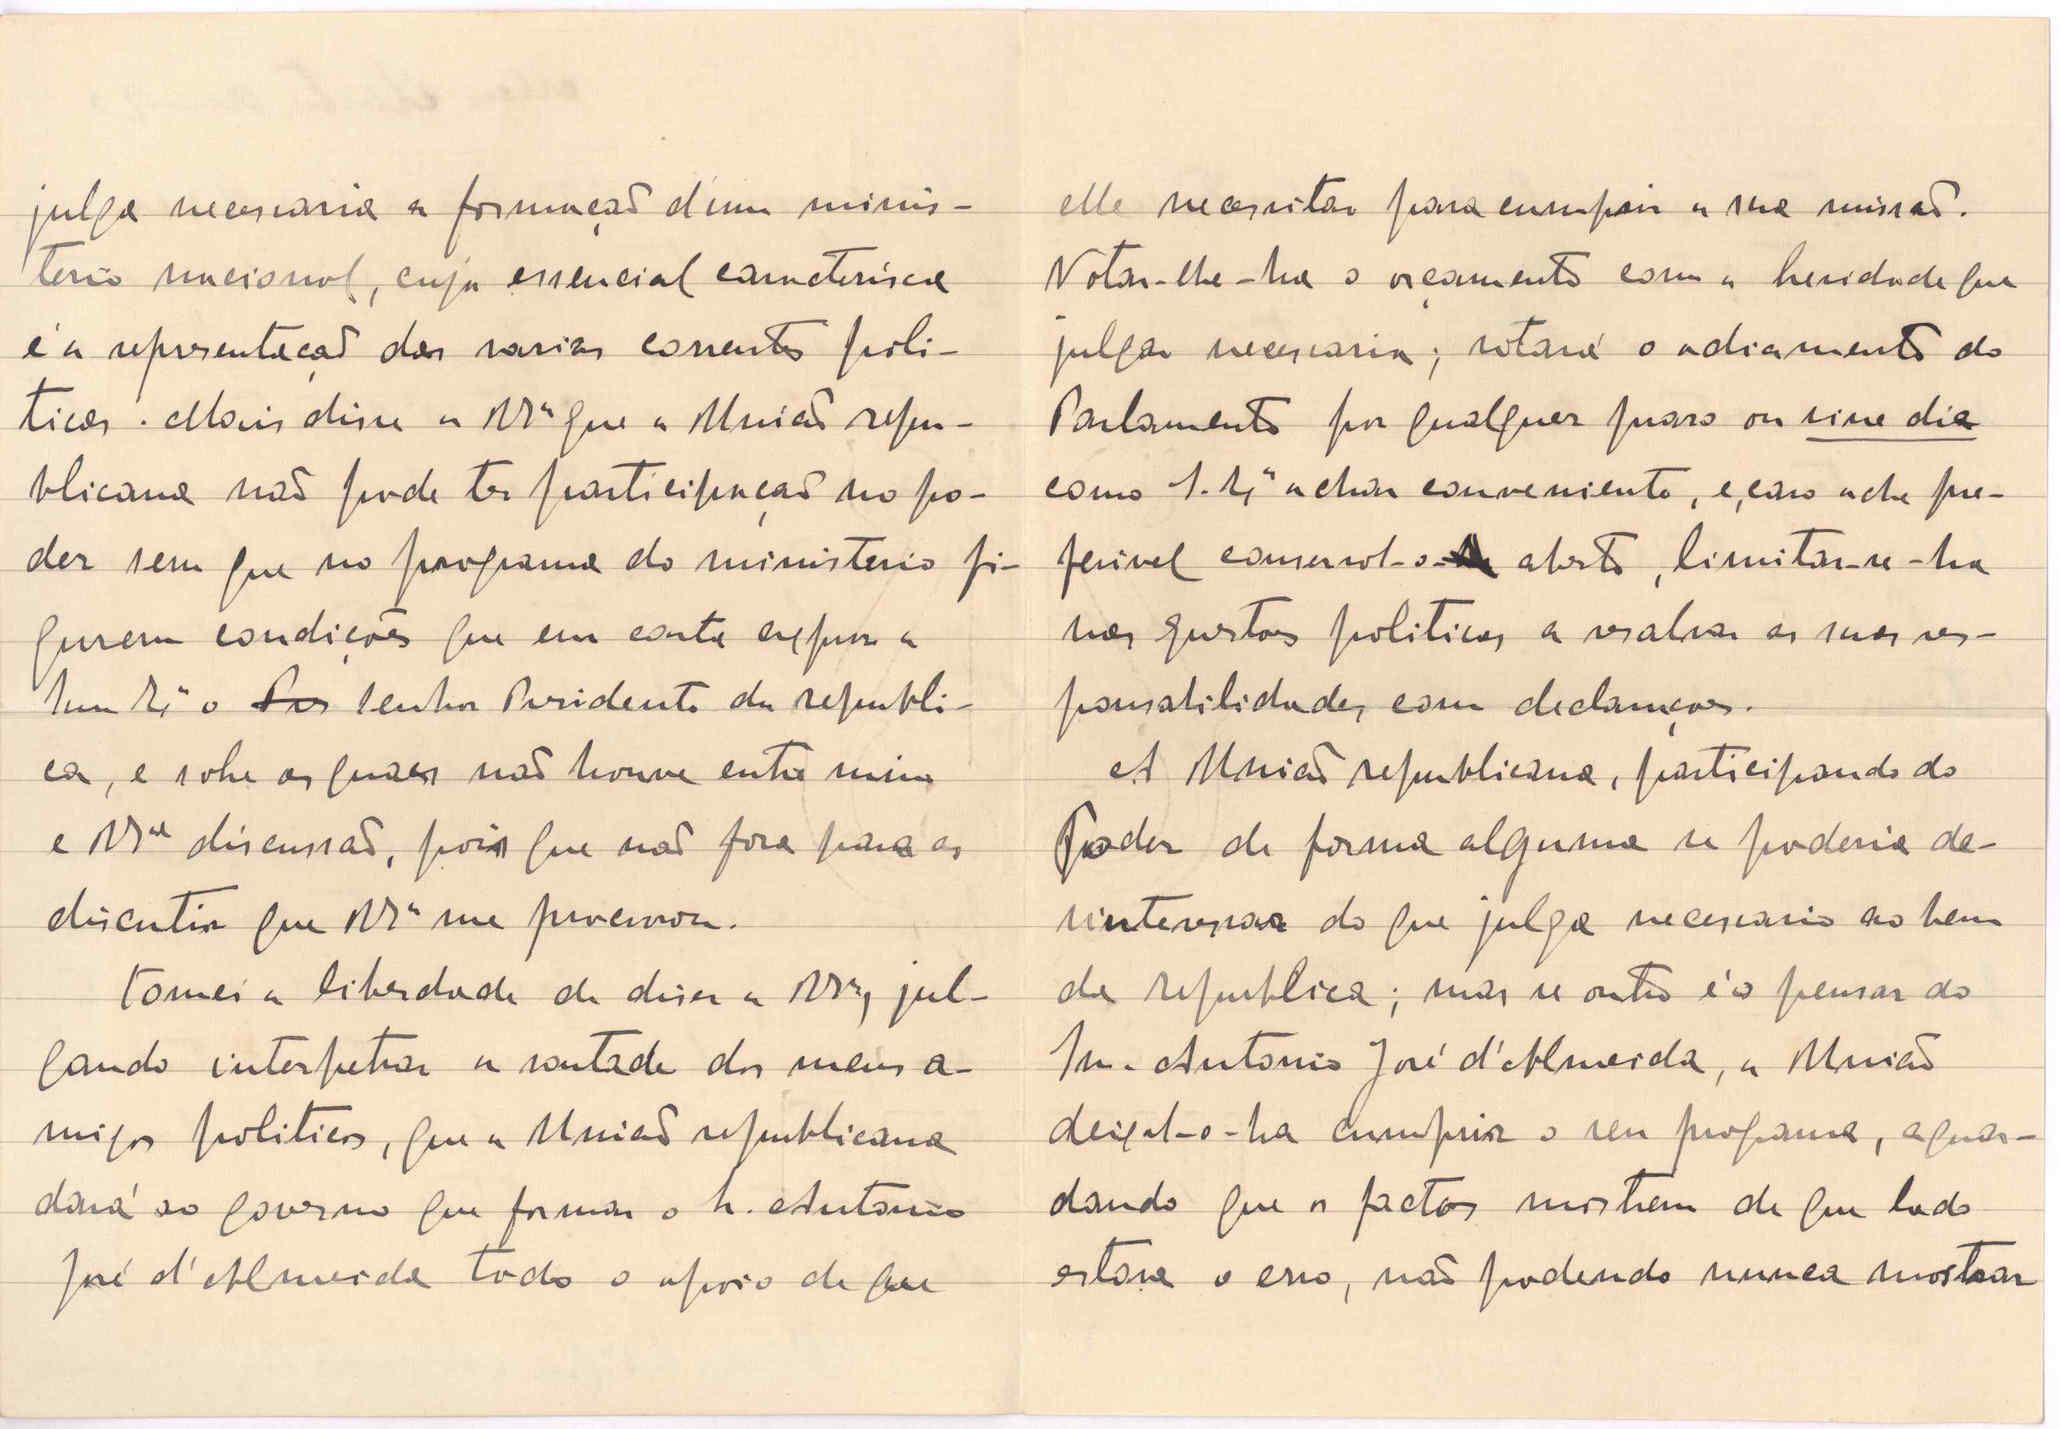 julga necessaria a formação d'um minis-
terio nacional, cuja essencial caracterisca
é a representação das varias correntes poli-
ticas. Mais disse a V. Ex.ª que a União repu-
blicana não pode ter participação no po-
der sem que no programa do ministerio fi-
gurem condições que em carta expuz a
Sua Ex.ª o Pres Senhor Presidente da republi-
ca, e sobre as quaes não houve entre mim
e V. Ex.ª discussão, pois que não fora para as
discutir que V. Ex.ª me procurou.
Tomei a liberdade de dizer a V. Ex.ª, jul-
gando interpetrar a vontade dos meus a-
migos politicos, que a União republicana
dará ao governo que formar o Sr. Antonio
José d'Almeida todo o apoio de que
elle necessitar para cumprir a sua missão.
Votar-lhe-ha o orçamento com a brevidade que
julgar necessaria; votará o adiamento do
Parlamento por qualquer praso ou sine die
como S. Ex.ª achar conveniente, e, caso ache pre-
ferivel conserval-o aberto, limitar-se-ha
nas questões politicas a resalvar as suas res-
ponsabilidades, com declarações.
A União republicana, participando do
Poder de forma alguma se poderia de-
sinteressar do que julga necessario ao bem
da republica; mas se outro é o pensar do
Sr. Antonio José d'Almeida, a União
deixal-o-ha cumprir o seu programa, aguar-
dando que os factos mostrem de que lado
estava o erro, não podendo nunca mostrar